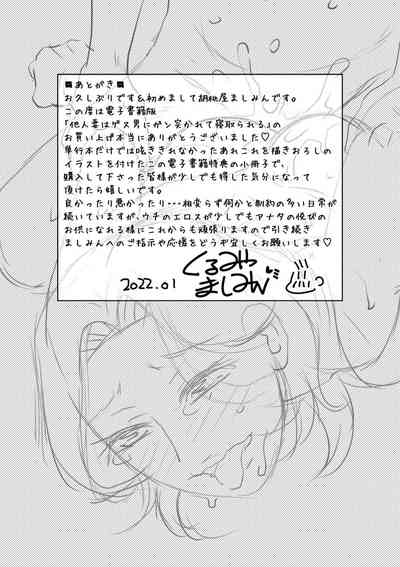 ■あとがき■
お久しぶりです&初めまして胡桃屋ましみんです。
この度は電子書籍版
「他人妻はゲス男にガン突かれて寝取られる」の
お買い上げ本当にありがとうございました♡
単行本だけでは呟ききれなかったあれこれを描きおろしの
イラストを付けたこの電子書籍特典の小冊子で、
購入して下さった皆様が少しでも得した気分になって
頂けたら嬉しいです。
良かったり悪かったり・・・相変らず何かと制約の多い日常が
続いていますが、ウチのエロスが少しでもアナタの悦びの
お供になれる様にこれからも頑張りますので引き続き
ましみんへのご指示や応援をどうぞ宜しくお願いします♡
くるみや
2022.01 ましみん